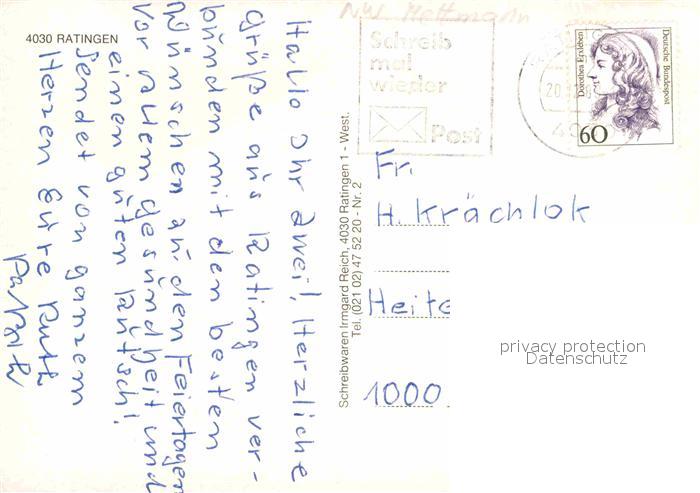 4030 RATINGEN
Hallo Ihr Zwei! Herzliche
Grüße aus Ratingen ver-
bunden mit den besten
Wünschen zu den Feiertagen
vor allem Gesundheit und
einen guten Rutsch!
Sendet von ganzem
Herzen Eure Ruth
Schreibwaren Irmgard Reich, 4030 Ratingen 1 - West.
Tel. (021 02) 47 52 20 - Nr. 2
NW Mettmann
Schreib
mal
wieder
Post
20
Dorothea Erxleben
Deutsche Bundespost
60
Fr.
H. Krächlok
Heite
1000
privacy protection
Datenschutz